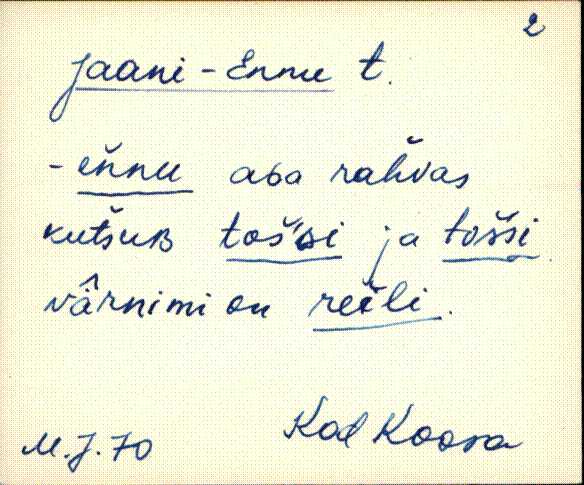 2
Jaani-Ennu t.
- eňnu aɢa rahv̌as
kutšuʙ toš'si ja tošši
vârnimi on reili.
M.J.70 Kod Koosa